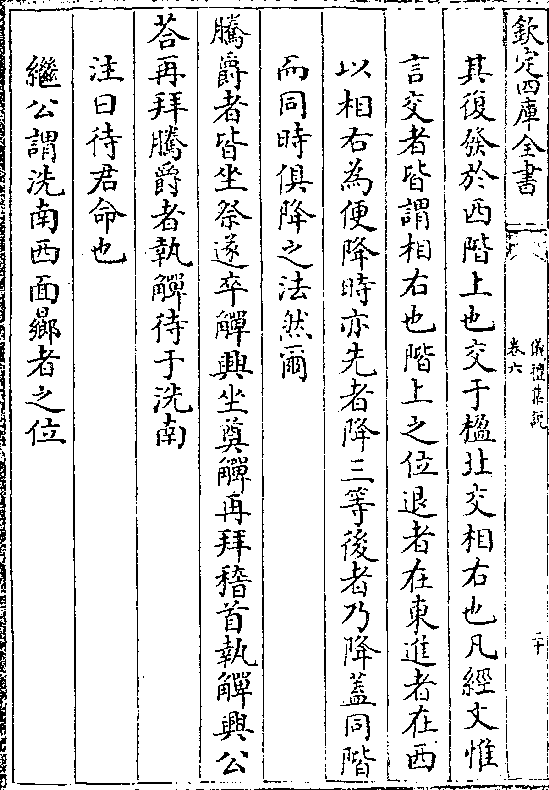 欽定四庫全書
儀禮集說
卷六
二十
其復發於西階上也交于楹北交相右也凡經文惟
言交者皆謂相右也階上之位退者在東進者在西
以相右為便降時亦先者降三等後者乃降蓋同階
而同時俱降之法然爾
騰爵者皆坐祭遂卒觶興坐奠觶再拜稽首執觶興公
荅再拜騰爵者執觶待于洗南
注曰待君命也
繼公謂洗南西面曏者之位